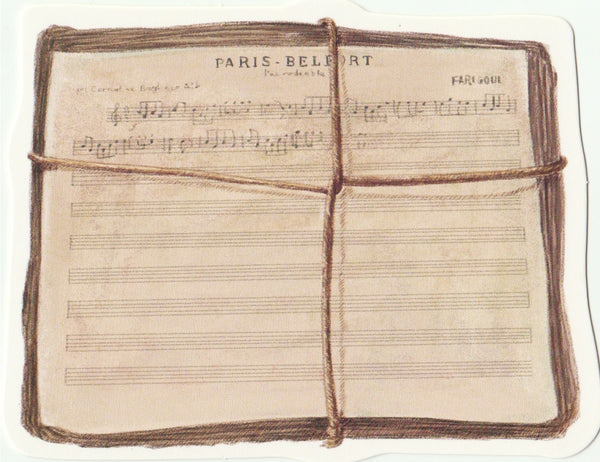 PARIS-BELFORT
Pas redoublé
FARIGOUL
1er Cornet ou Bugle en Si b